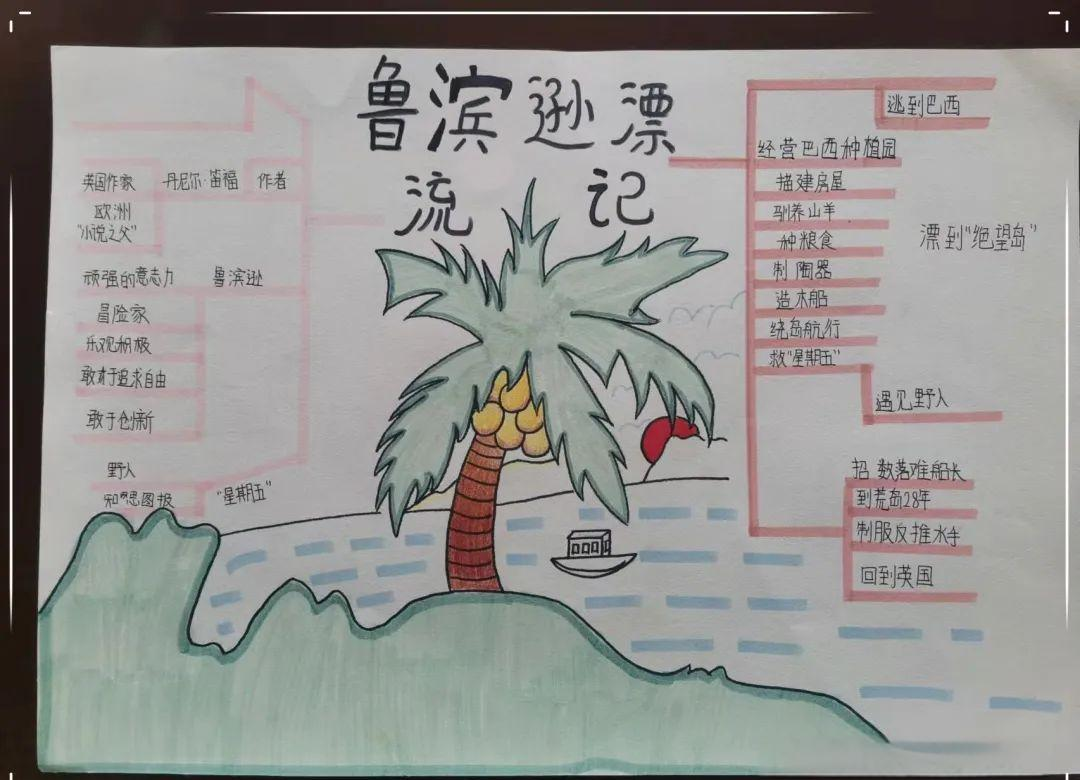 鲁滨逊漂
流记
英国作家 丹尼尔·笛福 作者
欧洲
"小说之父"
顽强的意志力 鲁滨逊
冒险家
乐观积极
敢于追求自由
敢于创新
野人
知恩图报 "星期五"
逃到巴西
经营巴西种植园
搭建房屋
驯养山羊
种粮食
制陶器
造木船
绕岛航行
救"星期五"
漂到"绝望岛"
遇见野人
招 数落难船长
到荒岛28年
制服反推水手
回到英国